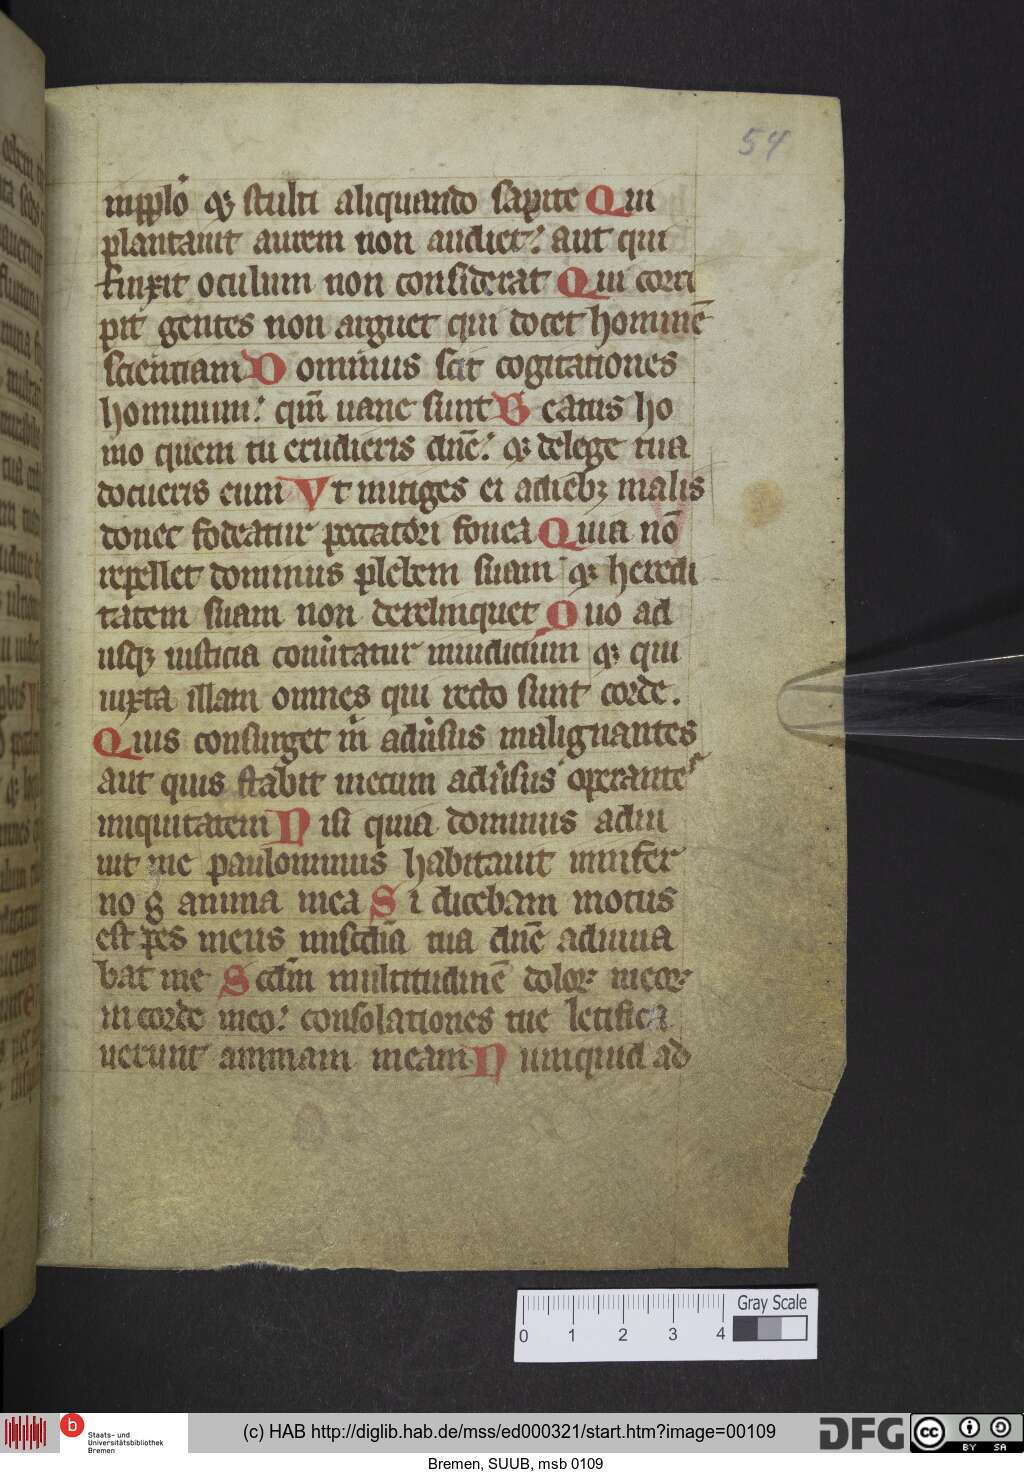 54
inpplo et stulti aliquando sapite Qui
plantauit aurem non audiet: aut qui
finxit oculum non considerat Qui corri
pit gentes non arguet qui docet hominē
scientiam Dominus scit cogitationes
hominum: qm̄ uane sunt Beatus ho
mo quem tu erudieris dn̄e: et delege tua
docueris eum Vt mitiges ei adiebꝫ malis
donec fodeatur peccatori fouea Quia nō
repellet dominus plebem suam et heredi
tatem suam non derelinquet Quo ad
usqꝫ iusticia conu̍tatur iniudicium et qui
iuxta illam omnes qui recto sunt corde.
Quis consurget m̍ adu̍sus malignantes
aut quis stabit mecum adu̍sus operantes
iniquitatem Nisi quia dominus adiu
uit me paulominus habitauit ininfer
no g̍ anima mea Si dicebam motus
est pes meus misc̄dia tua dn̄e adiuua
bat me Scdm̄ multitudinē doloꝝ meoꝝ
in corde meo: consolationes tue letifica
uerunt animam meam Nunquid ad
0 1 2 3 4
Gray Scale
b
Staats- und
Universitätsbibliothek
Bremen
(c) HAB http://diglib.hab.de/mss/ed000321/start.htm?image=00109
DFG
cc BY SA
Bremen, SUUB, msb 0109